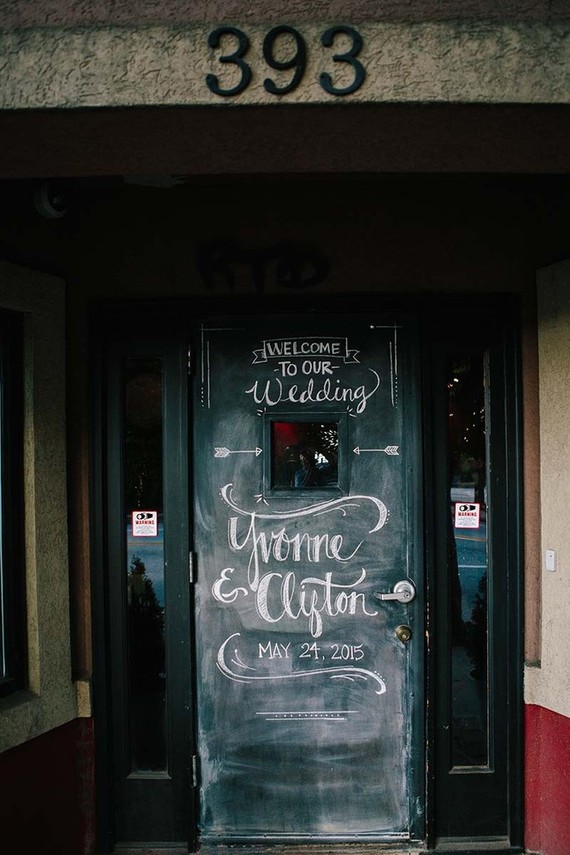 393
WELCOME
-TO OUR-
Wedding
WARNING
WARNING
Yvonne
& Clifton
MAY 24, 2015